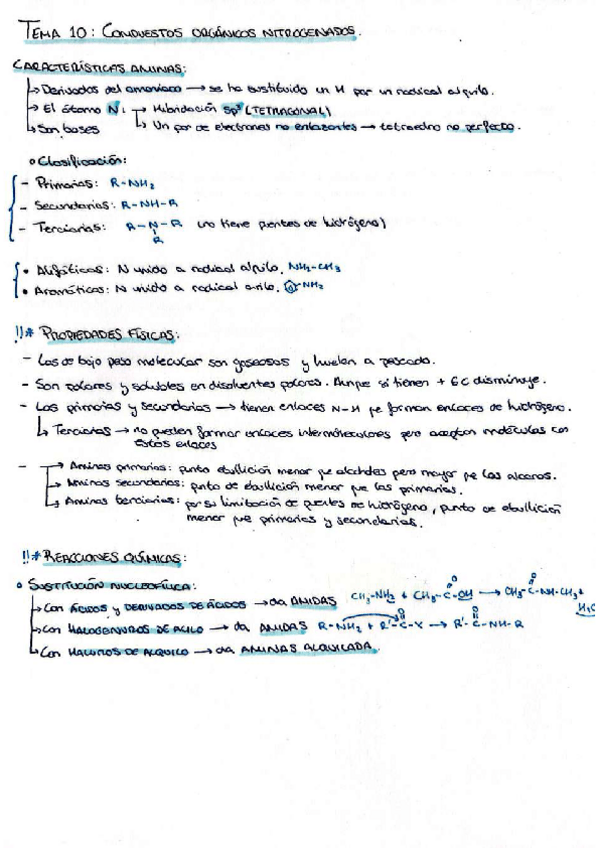 TEMA 10: COMPUESTOS ORGÁNICOS NITROGENADOS.
CARACTERÍSTICAS AMINAS:
↳ Derivados del amoniaco → se ha sustituido un H por un radical alquilo.
↳ El átomo N: → Hibridación sp³ (TETRAGONAL)
↳ Un par de electrones no enlazantes → tetraedro no perfecto.
↳ Son bases
• Clasificación:
- Primarias: R-NH₂
- Secundarias: R-NH-R
- Terciarias: R-N-R (no tiene puentes de hidrógeno)
R
• Alifáticas: N unido a radical alquilo. NH₂-CH₃
• Aromáticas: N unido a radical arilo. -NH₂
!!* PROPIEDADES FÍSICAS:
- Las de bajo peso molecular son gaseosas y huelen a pescado.
- Son polares y solubles en disolventes polares. Aunque si tienen + 6C disminuye.
- Las primarias y secundarias → tienen enlaces N-H que forman enlaces de hidrógeno.
↳ Terciarias → no pueden formar enlaces intermoleculares pero aceptan moléculas con
estos enlaces
- → Aminas primarias: punto ebullición menor que alcoholes pero mayor que los alcanos.
→ Aminas secundarias: punto de ebullición menor que las primarias.
→ Aminas terciarias: por su limitación de puentes de hidrógeno, punto de ebullición
menor que primarias y secundarias.
!!* REACCIONES QUÍMICAS:
• SUSTITUCIÓN NUCLEOFÍLICA:
↳ Con ÁCIDOS y DERIVADOS DE ÁCIDOS → da AMIDAS CH₃-NH₂ + CH₃-C(=O)-OH → CH₃-C(=O)-NH-CH₃ +
H₂O
↳ Con HALOGENUROS DE ACILO → da AMIDAS R-NH₂ + R'-C(=O)-X → R'-C(=O)-NH-R
↳ Con HALUROS DE ALQUILO → da AMINAS ALQUILADA